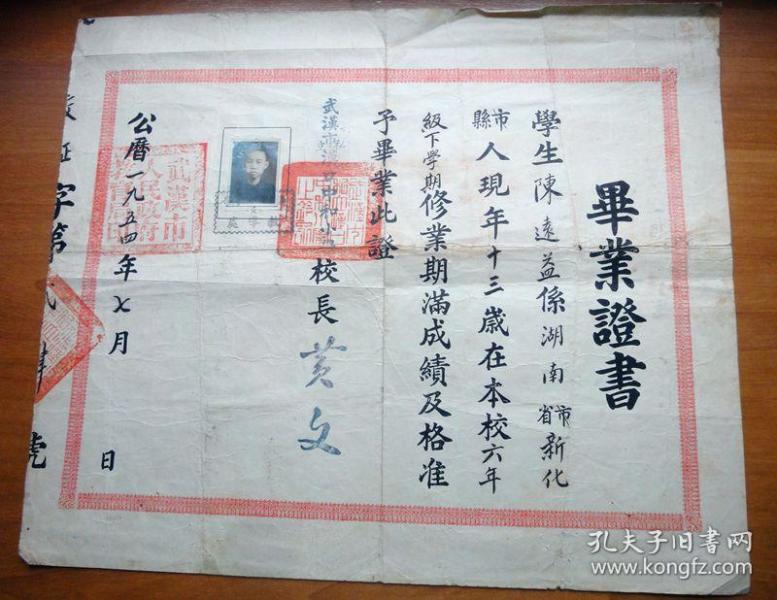 畢業證書
學生陳遠益係湖南省市新化
縣市人現年十三歲在本校六年
級下學期修業期滿成績及格准
予畢業此證
武漢市漢口中和 校長 黃文
公曆一九五四年七月 日
武漢市
人民政府
字第 肆號
孔夫子旧书网
www.kongfz.com